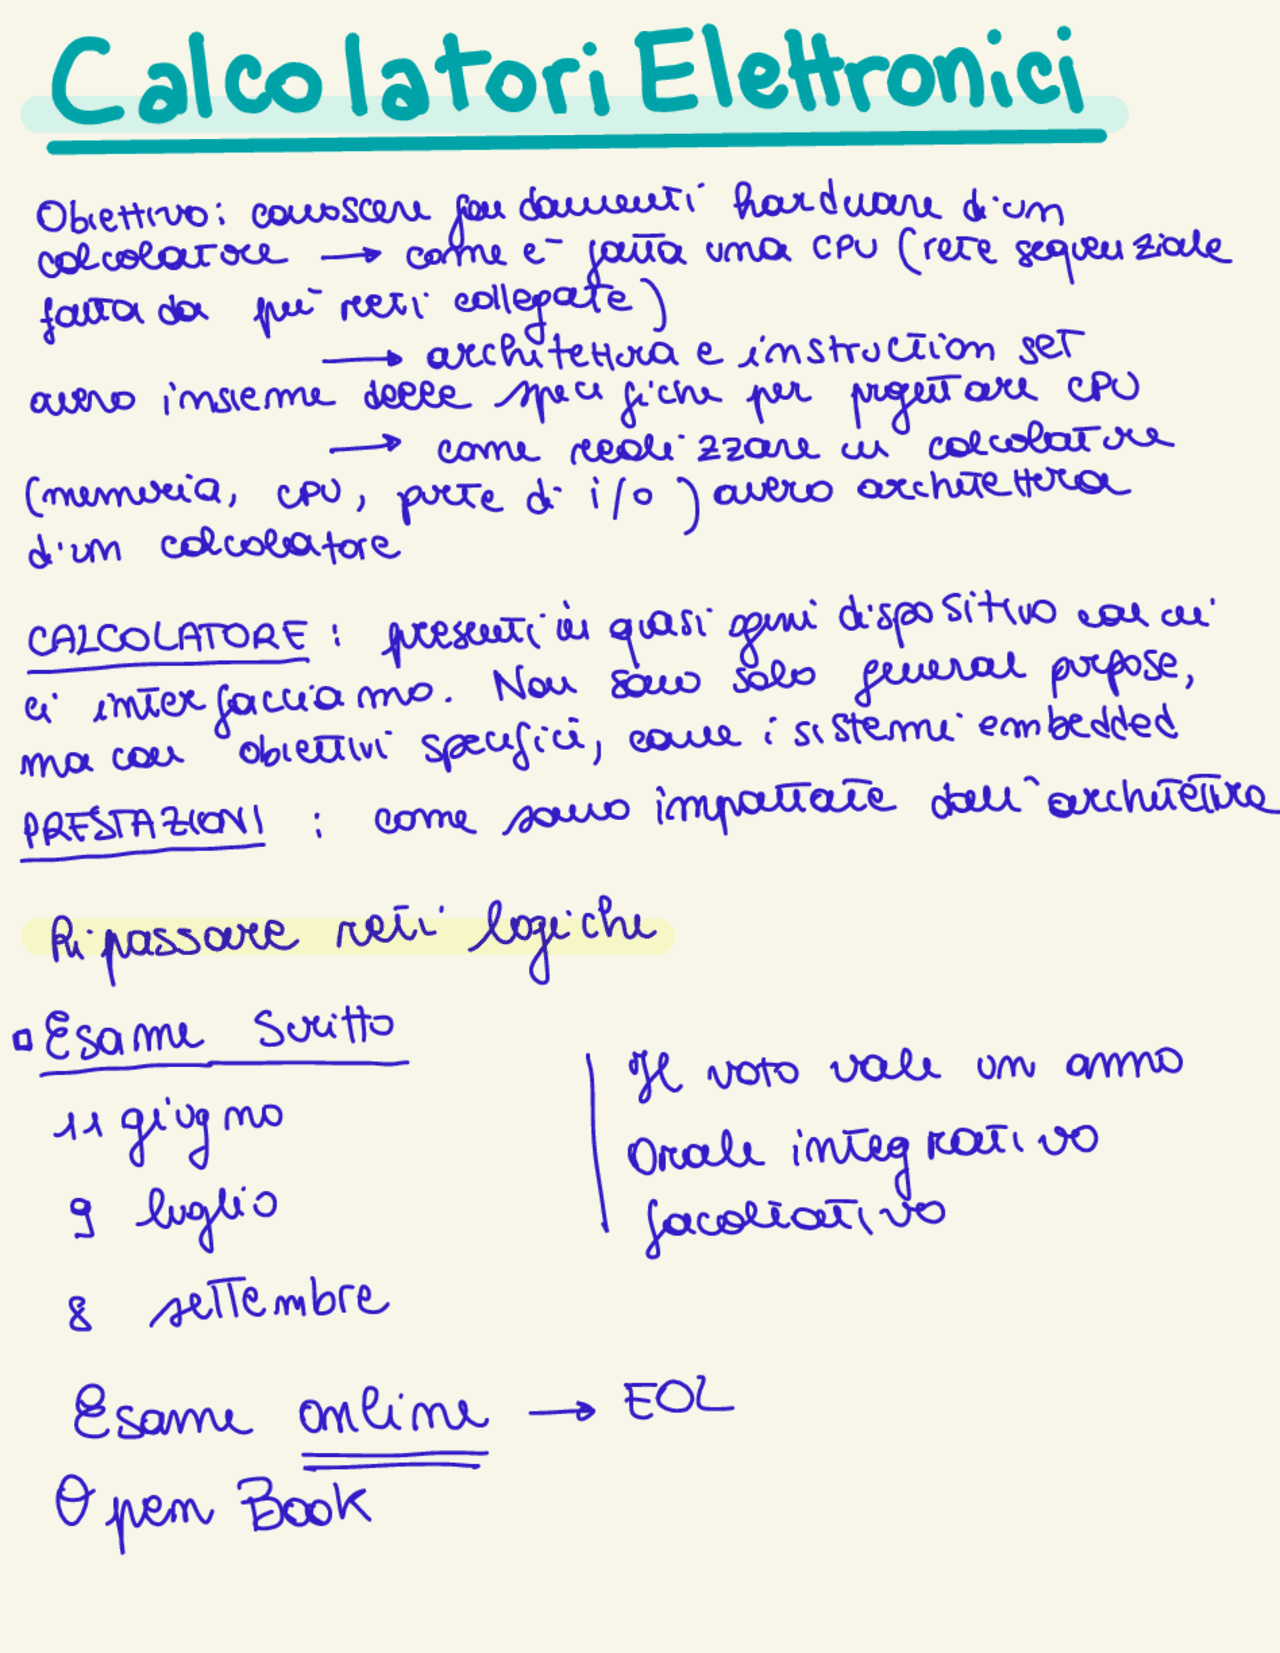 Calcolatori Elettronici
Obiettivo: conoscere fondamenti hardware di un
calcolatore → come è fatta una CPU (rete sequenziale
fatta da più reti collegate)
→ architettura e instruction set
ovvero insieme delle specifiche per progettare CPU
→ come realizzare un calcolatore
(memoria, CPU, parte di i/o) ovvero architettura
di un calcolatore
CALCOLATORE: presenti in quasi ogni dispositivo con cui
ci interfacciamo. Non sono solo general purpose,
ma con obiettivi specifici, come i sistemi embedded
PRESTAZIONI: come sono impattate dall'architettura
Ripassare reti logiche
Esame Scritto
11 giugno
9 luglio
8 settembre
Il voto vale un anno
Orale integrativo
facoltativo
Esame online → EOL
Open Book